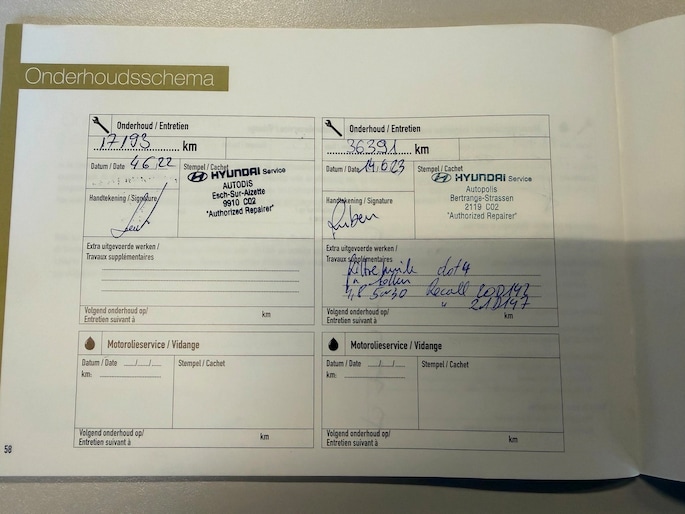 Onderhoudsschema
Onderhoud / Entretien
17193 km
Datum / Date 4.6.22
Stempel / Cachet
HYUNDAI Service
AUTODIS
Esch-Sur-Alzette
9910 C02
"Authorized Repairer"
Handtekening / Signature
Extra uitgevoerde werken /
Travaux supplémentaires
Volgend onderhoud op/
Entretien suivant à
km
Onderhoud / Entretien
36391 km
Datum / Date 14.6.23
Stempel / Cachet
HYUNDAI Service
Autopolis
Bertrange-Strassen
2119 C02
"Authorized Repairer"
Handtekening / Signature
Ruben
Extra uitgevoerde werken /
Travaux supplémentaires
Filtre huile dot4
5w30 Recall 20D142
" 21D147
Volgend onderhoud op/
Entretien suivant à
km
Motorolieservice / Vidange
Datum / Date __/__/__
km:
Stempel / Cachet
Volgend onderhoud op/
Entretien suivant à
km
Motorolieservice / Vidange
Datum / Date __/__/__
km:
Stempel / Cachet
Volgend onderhoud op/
Entretien suivant à
km
58